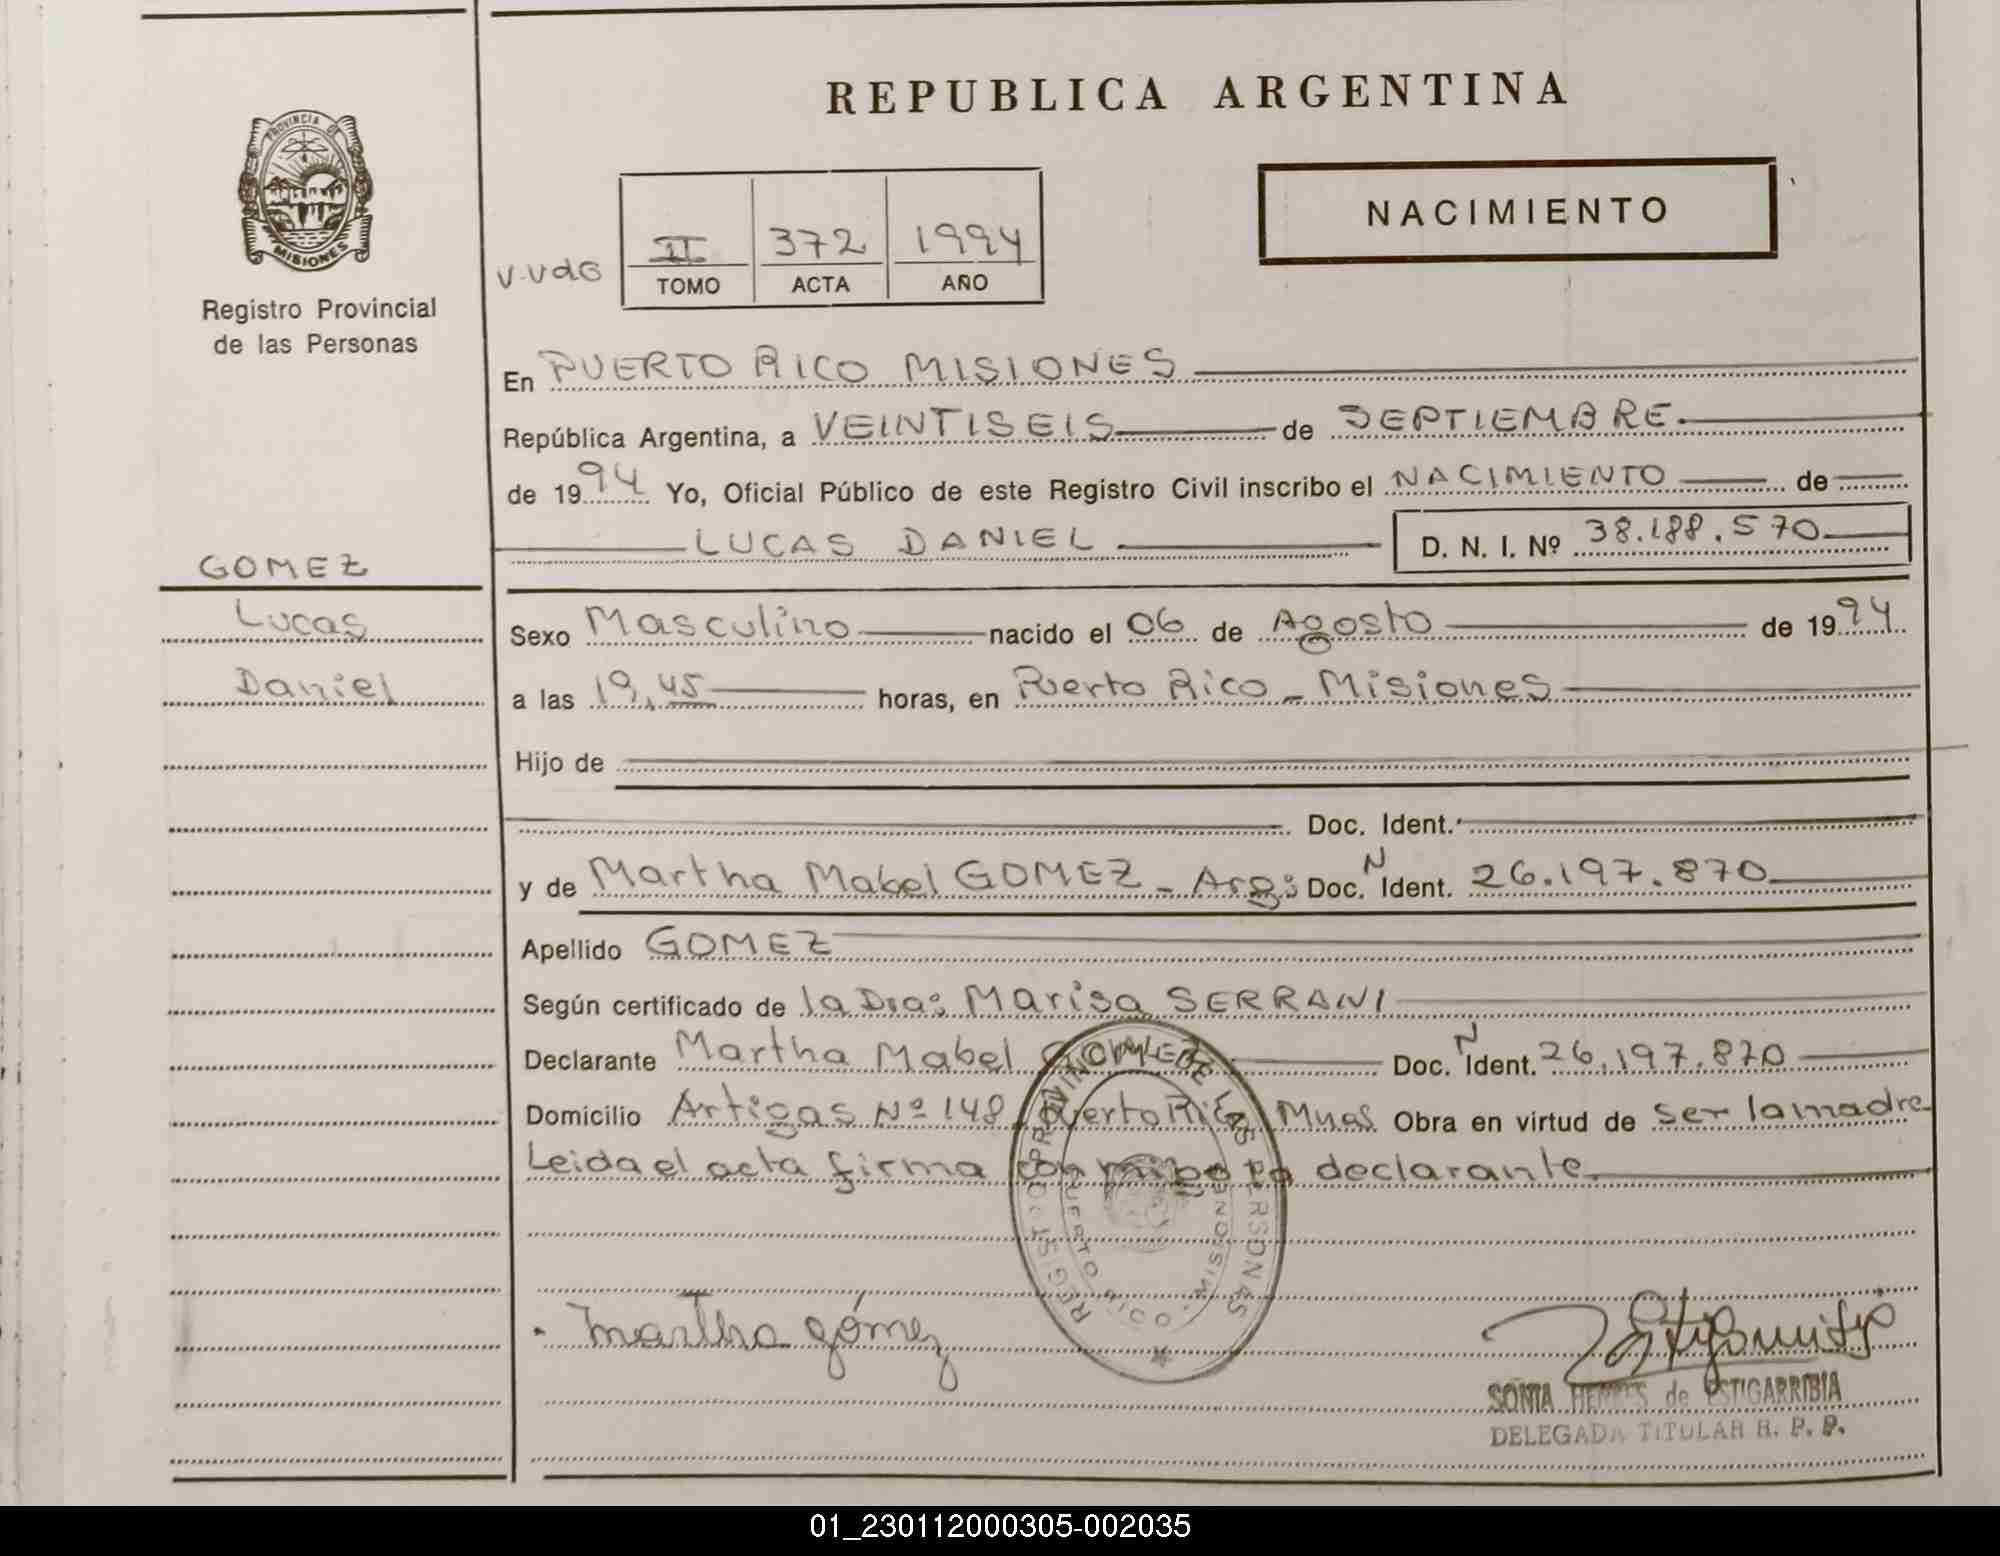 REPUBLICA ARGENTINA
PROVINCIA DE
MISIONES
Registro Provincial
de las Personas
NACIMIENTO
II 372 1994
TOMO ACTA AÑO
En PUERTO RICO MISIONES
República Argentina, a VEINTISEIS de SEPTIEMBRE.
de 19 94 Yo, Oficial Público de este Registro Civil inscribo el NACIMIENTO de
LUCAS DANIEL D. N. I. Nº 38.188.570
GOMEZ
Lucas
Daniel
Sexo Masculino nacido el 06 de Agosto de 19 94
a las 19,45 horas, en Puerto Rico - Misiones
Hijo de
Doc. Ident.
y de Martha Mabel GOMEZ - Arg: Doc. N Ident. 26.197.870
Apellido GOMEZ
Según certificado de la Dra: Marisa SERRANI
Declarante Martha Mabel GOMEZ Doc. N Ident. 26.197.870
Domicilio Artigas Nº 148 Puerto Rico Mnes Obra en virtud de ser la madre
Leida el acta firma conmigo la declarante.
REGISTRO PROVINCIAL DE LAS PERSONAS
PUERTO RICO - MISIONES
Martha gómez
SONIA de ESTIGARRIBIA
DELEGADA TITULAR R. P. P.
01_230112000305-002035